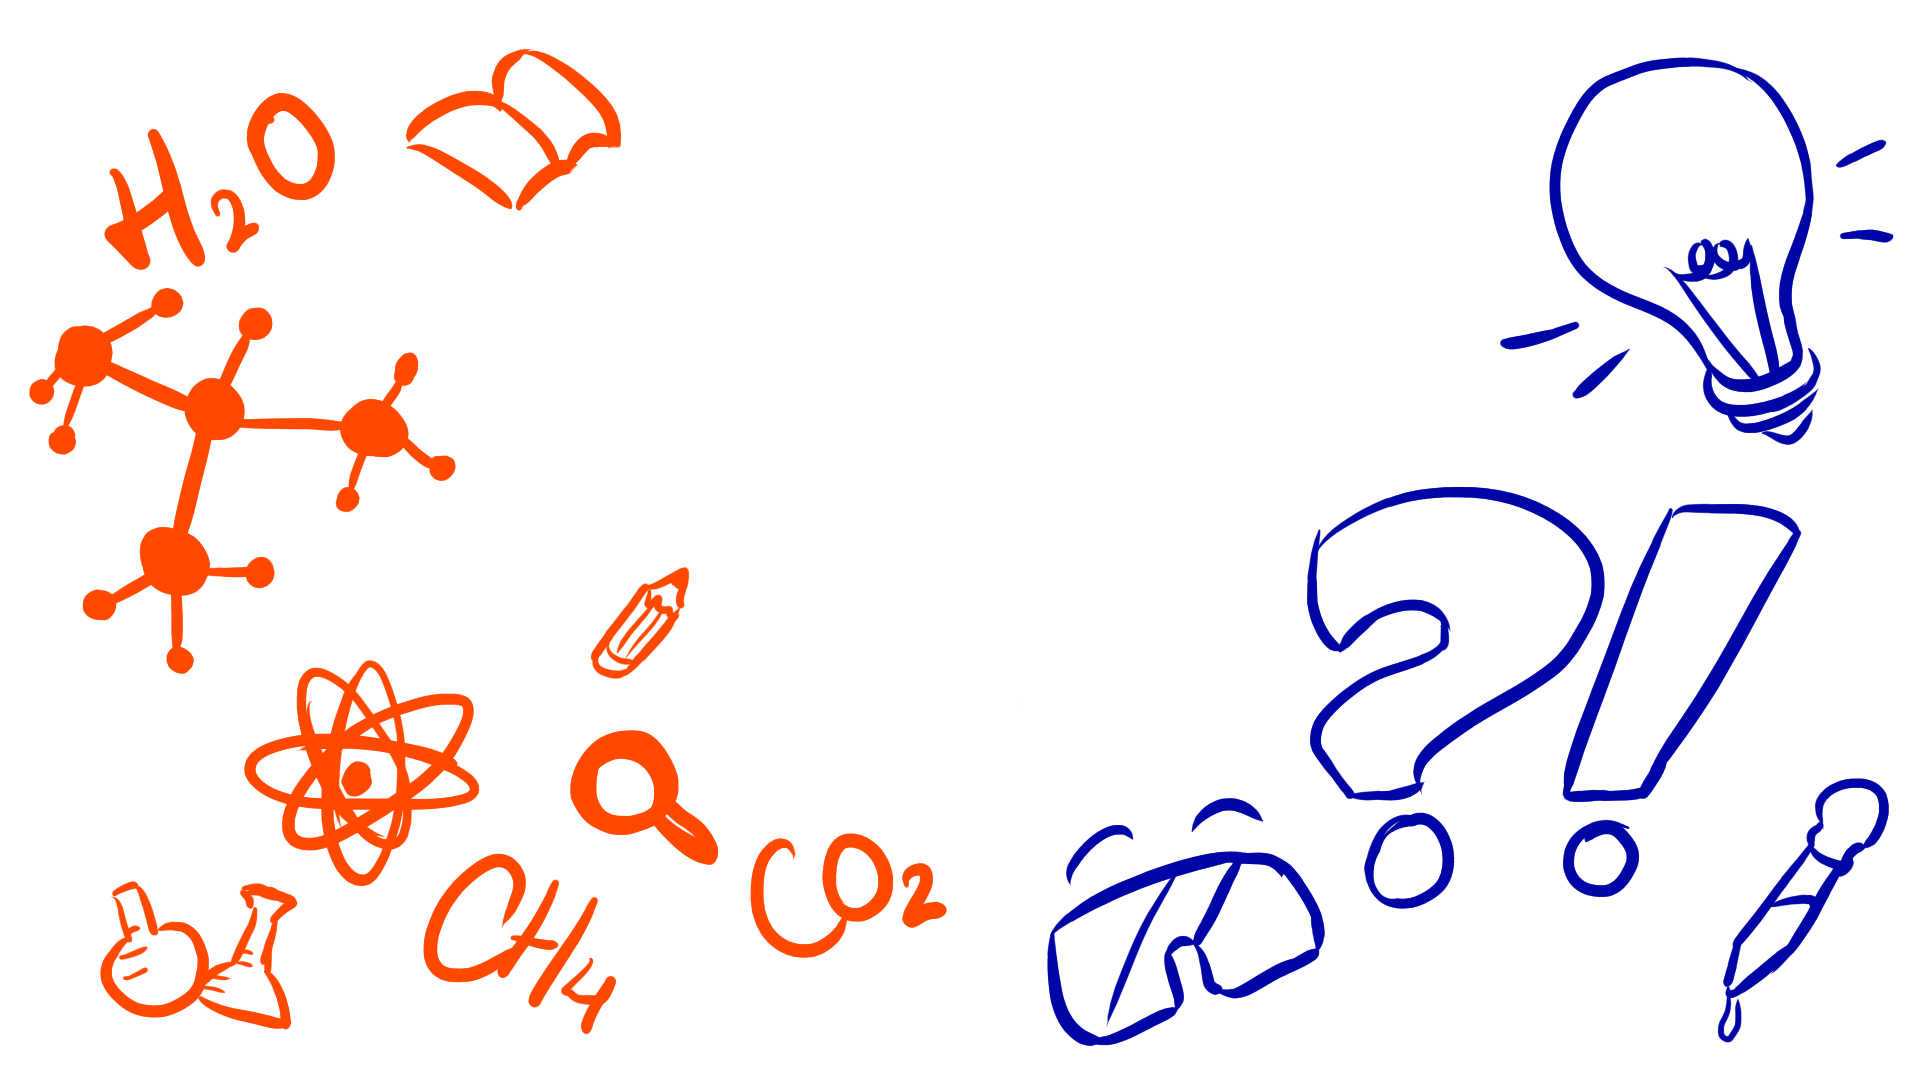 H2O
?!
CH4
CO2